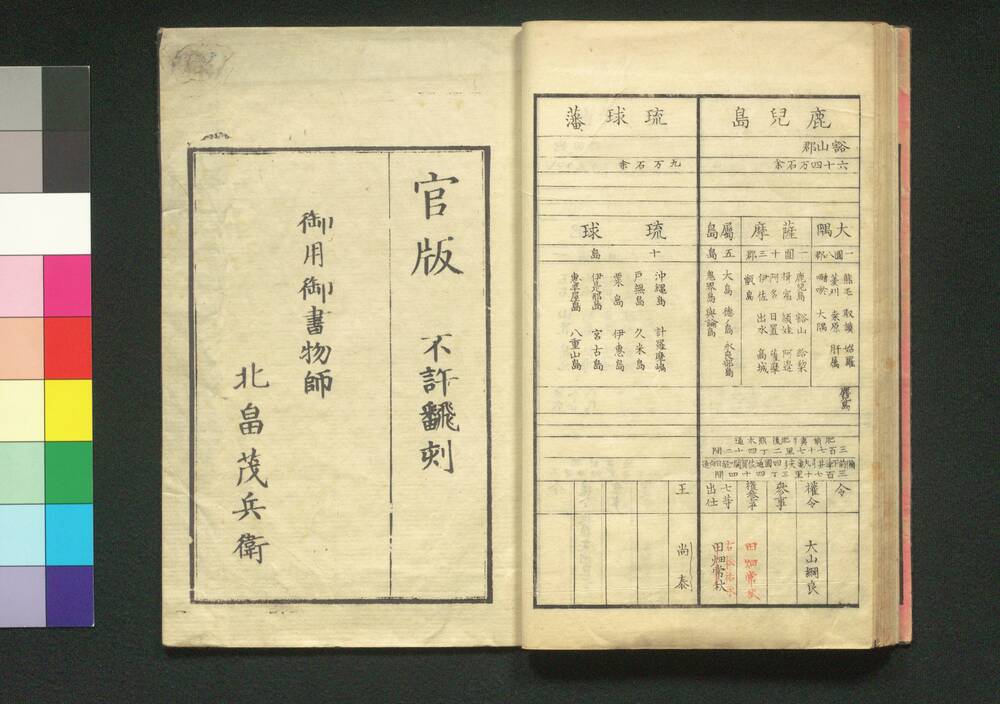 鹿兒島
谿山郡
六十四万石余
大隅
一國八郡
熊毛 馭謨 姶羅
菱刈 桒原 肝属
囎唹 大隅
薩摩
一國十三郡
鹿児島 谿山 給黎
揖宿 頴娃 阿邉
阿多 日置 薩摩
伊佐 出水 高城
甑島
屬島
五島
大島 徳ノ島 永良部島
鬼界島 與論島
三百七十七里二丁四十二間
三百七十里三丁四十四間
令
權令
大山綱良
參事
權參事
田畑常秋
七等出仕
田畑常秋
琉球藩
九万石余
琉球
十島
沖縄島 計羅摩嶋
戸無島 久米島
粟島 伊惠島
伊是那島 宮古島
惠平屋島 八重山島
王
尚泰
官版 不許翻刻
御用御書物師
北畠茂兵衛